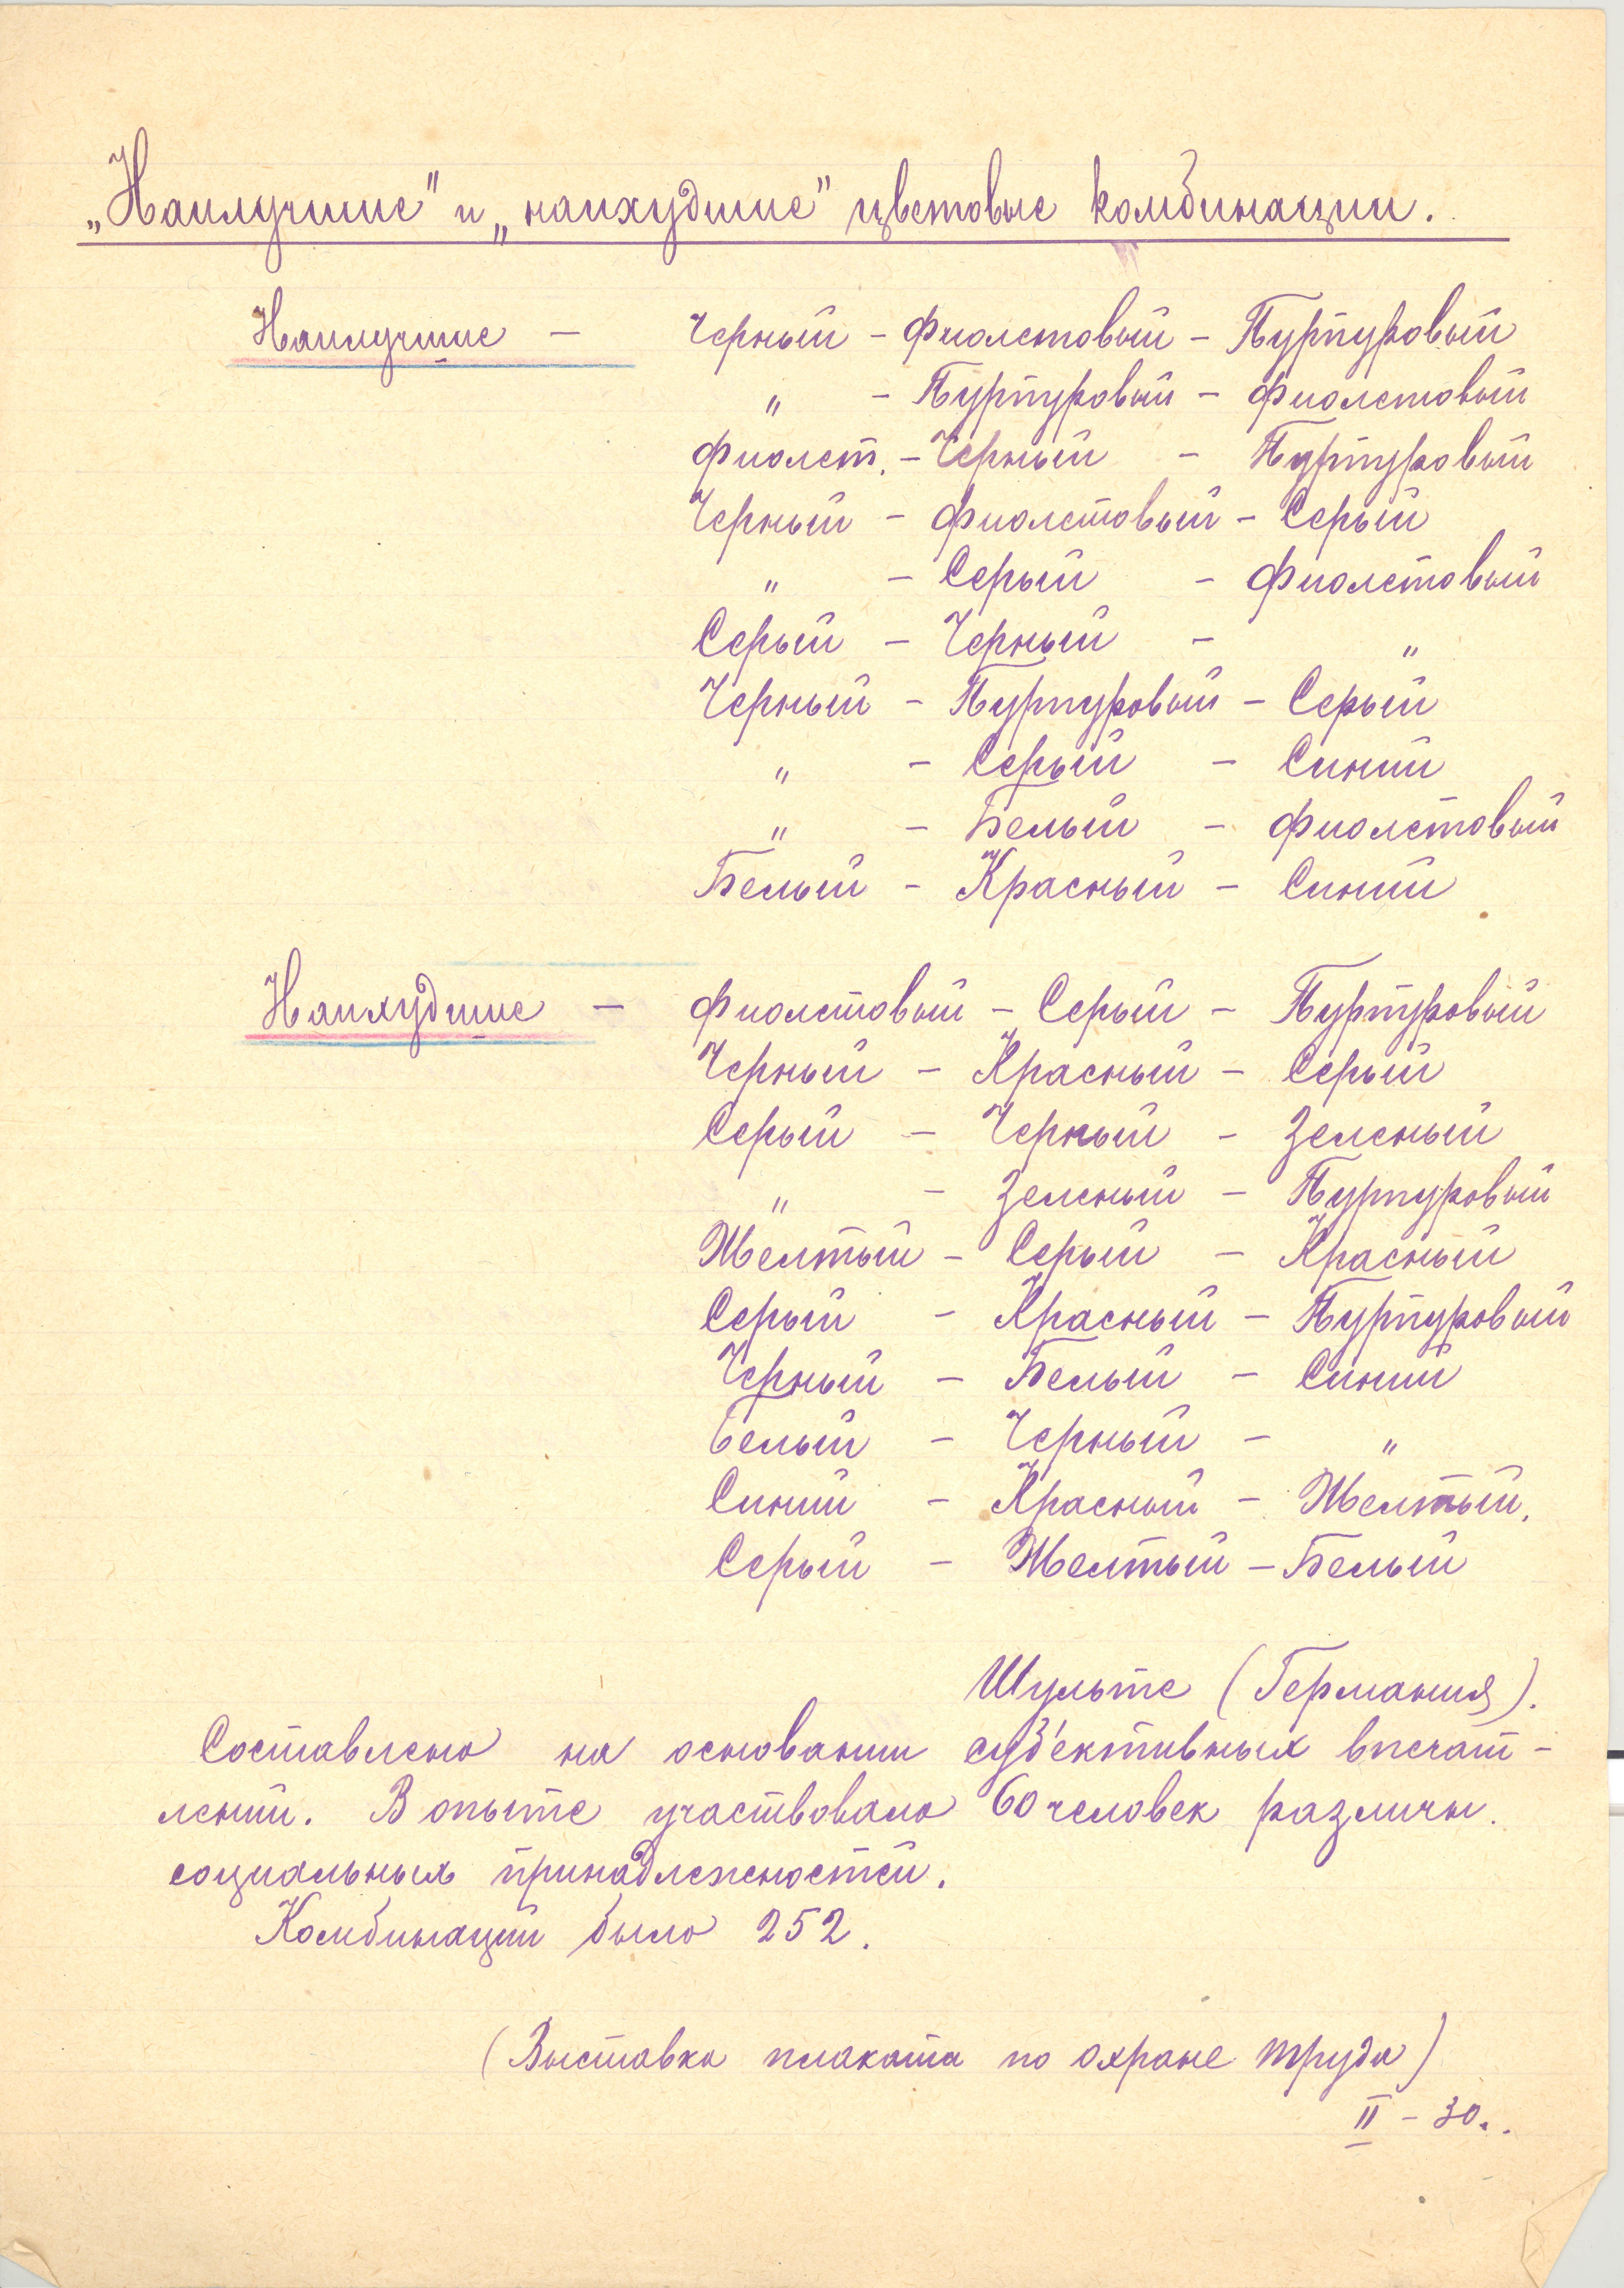 „Наилучшие" и „наихудшие" цветовые комбинации.
Наилучшие — Черный – Фиолетовый – Пурпуровый
" – Пурпуровый – Фиолетовый
Фиолет. – Черный – Пурпуровый
Черный – Фиолетовый – Серый
" – Серый – Фиолетовый
Серый – Черный – "
Черный – Пурпуровый – Серый
" – Серый – Синий
" – Белый – Фиолетовый
Белый – Красный – Синий
Наихудшие — Фиолетовый – Серый – Пурпуровый
Черный – Красный – Серый
Серый – Черный – Зеленый
" – Зеленый – Пурпуровый
Желтый – Серый – Красный
Серый – Красный – Пурпуровый
Черный – Белый – Синий
Белый – Черный – "
Синий – Красный – Желтый.
Серый – Желтый – Белый
Шульте (Германия).
Составлено на основании суб'ективных впечат-
лений. В опыте участвовало 60 человек различн.
социальных принадлежностей.
Комбинаций было 252.
(Выставка плаката по охране труда)
II – 30..